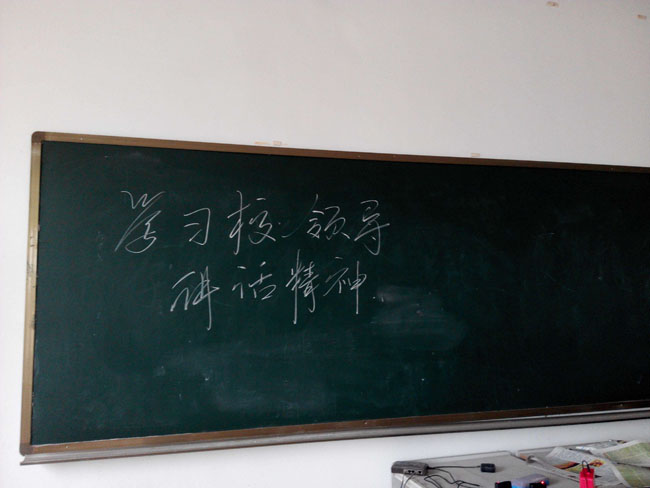 学习校领导
讲话精神